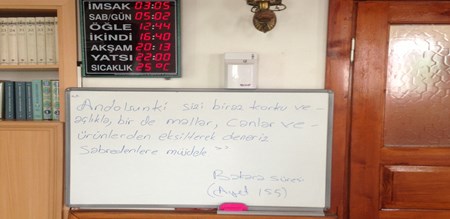 İMSAK 03:05
SAB/GÜN 05:02
ÖĞLE 12:44
İKİNDİ 16:40
AKŞAM 20:13
YATSI 22:00
SICAKLIK 25 °C
"Andolsunki sizi biraz korku ve -
açlıkla, bir de mallar, canlar ve -
ürünlerden eksilterek deneriz
Sabredenlere müjdele "
Bakara suresi
(Ayet 155)